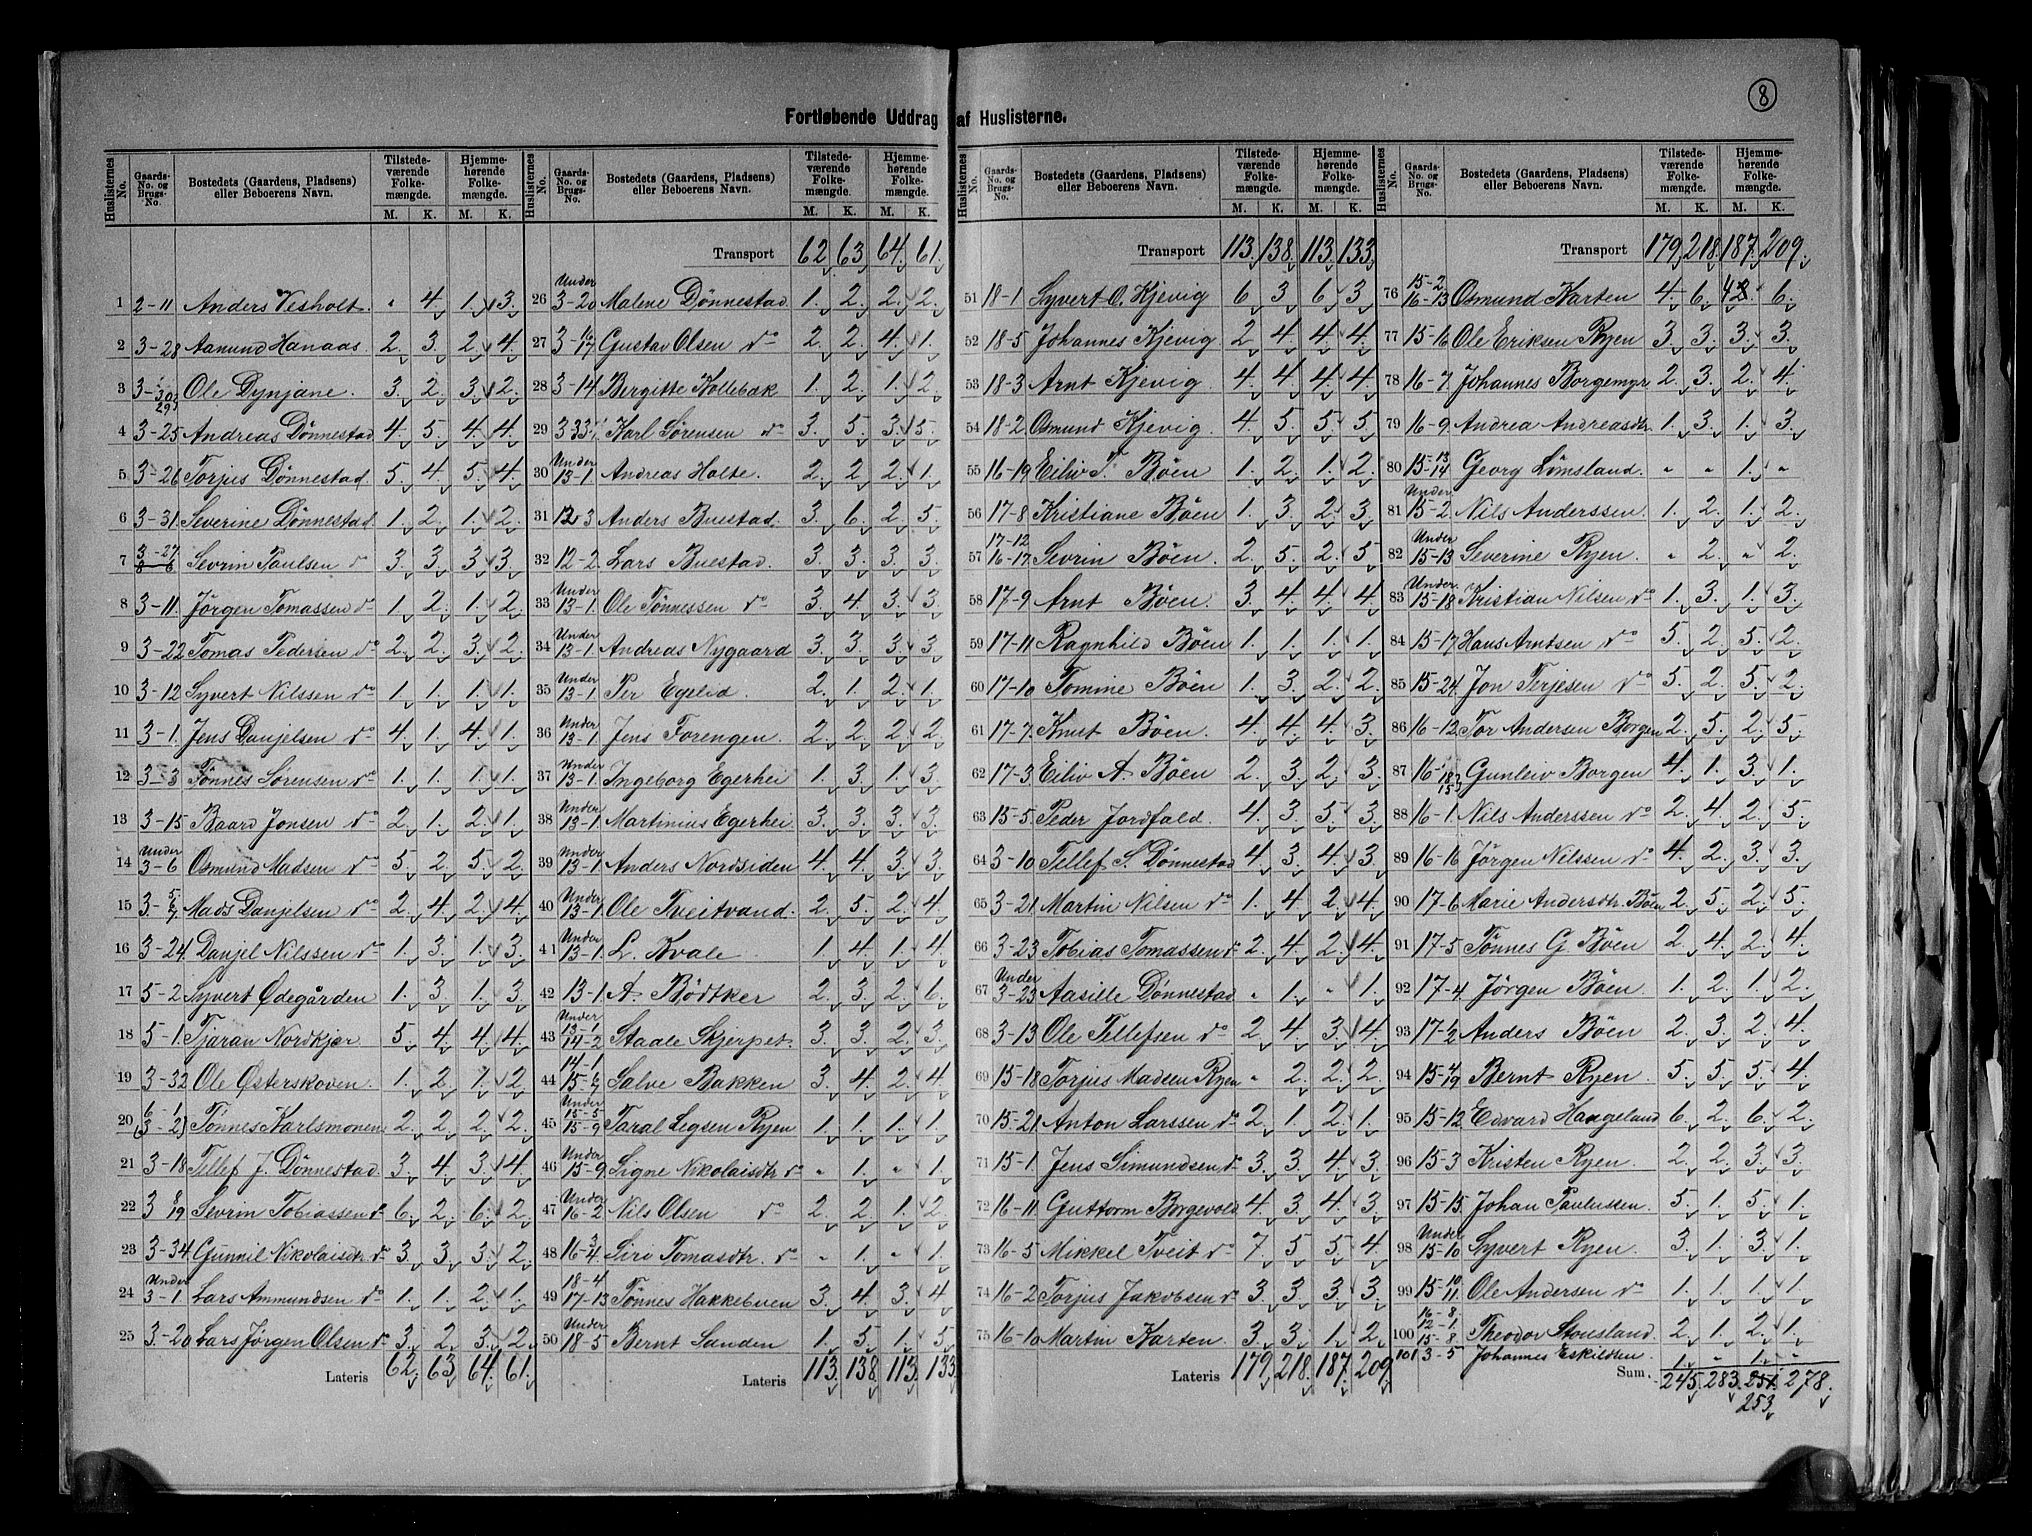 8
Fortløbende Uddrag af Huslisterne.
Huslisternes No. | Gaards-No. og Brugs-No. | Bostedets (Gaardens, Pladsens) eller Beboerens Navn. | Tilstedeværende Folkemængde. M. K. | Hjemmehørende Folkemængde. M. K.
1 2-11 Anders Vesholt. " 4. 1. 3.
2 3-28 Aamund Hanaas. 2. 3. 2. 4.
3 3-30 29 Ole Dynjane. 3. 2. 3. 2.
4 3-25 Andreas Dønnestad 4. 5. 4. 4.
5 3-26 Torjus Dønnestad 5. 4. 5. 4.
6 3-31 Severine Dønnestad 1. 2. 1. 2.
7 3-27 Sevrin Paulsen do 3. 3. 3. 3.
8 3-11. Jørgen Tomassen do 1. 2. 1. 2.
9 3-22 Tomas Pedersen do 2. 2. 3. 2.
10 3-12 Syvert Nilssen do 1. 1. 1. 1.
11 3-1. Jens Danjelsen do 4. 1. 4. 1.
12 3-3 Tønnes Sørensen do 1. 1. 1. 1.
13 3-15 Baard Jonsen do 2. 1. 2. 1.
14 Under 3-6 Osmund Madsen do 5. 2. 5. 2.
15 3-5 6 7 Mads Danjelsen do 2. 4. 2. 4.
16 3-24 Danjel Nilssen do 1. 3. 1. 3.
17 5-2 Syvert Ødegården 1. 3. 1. 3.
18 5-1. Tjøran Nordkjær 5. 4. 4. 4.
19 3-32 Ole Østerskoven. 1. 2. 1. 2.
20 6-1 (3-2) Tønnes Karlsmonen 2. 2. 2. 2.
21 3-18 Tellef J. Dønnestad. 3. 4. 3. 4.
22 3 8 19 Sevrin Tobiassen do 6. 2. 6. 2.
23 3-34 Gunnil Nikolaisdtr. do 3. 3. 3. 2.
24 Under 3-1 Lars Ammundsen do 1. 1. 2. 1.
25 3-20 Lars Jørgen Olsen do 3. 2. 3. 2.
Lateris 62. 63. 64. 61.
Transport 62 63 64. 61.
26 Under 3-20 Malene Dønnestad 1. 2. 2. 2.
27 3-16 17 Gustav Olsen do 2. 2. 4. 1.
28 3-14 Birgitte Kollebæk 1. 2. 1. 2.
29 3 33 Karl Sørensen do 3. 5. 3. 5.
30 Under 13-1 Andreas Holte. 2. 2. 2. 1.
31 12 3 Anders Buestad. 3. 6. 2. 5.
32 12-2 Lars Buestad. 3. 3. 3. 3.
33 Under 13-1. Ole Tønnessen do 3. 4. 3. 3.
34 Under 13-1. Andreas Nygaard 3. 3. 3. 3.
35 Under 13-1. Per Egelid. 2. 1. 2. 1.
36 Under 13-1 Jens Forengen. 2. 2. 2. 2.
37 Under 13-1. Ingeborg Egerhei 1. 3. 1. 3.
38 Under 13-1. Martinius Egerhei. 3. 3. 3. 3.
39 Under 13-1 Anders Nordsiden 4. 4. 3. 3.
40 Under 13-1 Ole Tveitvand. 2. 5. 2. 4.
41 Under 13-1. L. Kvale. 1. 4. 1. 4.
42 13-1. A. Bödtker 2. 3. 2. 6.
43 Under 13-1 14-2 Staale Skjerpet. 3. 3. 2. 3.
44 14-1 15-6 7 Salve Bakken 3. 4. 2. 4.
45 Under 15-5 15-9 Taral Legsen Ryen 1. 1. 1. 1.
46 Under 15-9. Signe Nikolaisdtr do " 1. " 1.
47 Under 16-2 Nils Olsen do 2. 2. 1. 2.
48 16-3 4 Siro Tomasdtr. do " 1. " 1.
49 18-4 17-13 Tønnes Hakkebuen 3. 4. 3. 4.
50 Under 18-5 Bernt Sanden 1. 5. 1. 5.
Lateris 113. 138. 113. 133.
Transport 113. 138. 113. 133.
51 18-1 Syvert O. Kjevig 6 3 6 3
52 18-5 Johannes Kjevig 2 4. 4. 4.
53 18-3 Arnt Kjevig 4. 4. 4. 4.
54 18-2. Osmund Kjevig. 4. 5. 5. 5.
55 16-19 Eiliv T. Bøen 1. 2. 1. 2.
56 17-8 Kristiane Bøen 1. 3. 2. 3.
57 17-12 16-17 Sevrin Bøen. 2. 5. 2. 5.
58 17-9 Arnt Bøen. 3. 4. 4. 4.
59 17-11 Ragnhild Bøen 1. 1. 1. 1.
60 17-10 Tomine Bøen 1. 3. 2. 2.
61 17-7. Knut Bøen. 4. 4. 4. 3.
62 17-3. Eiliv A. Bøen 2. 3. 2. 3.
63 15-5. Peder Jordfald. 4. 3. 5. 3.
64 3-10. Tellef S. Dønnestad 4. 3. 4. 3.
65 3-21 Martin Nilsen do 1. 4. 2. 4.
66 3-23 Tobias Tomassen do 2. 4. 2. 4.
67 Under 3-23 Aasille Dønnestad " 1. " 1.
68 3-13 Ole Tellefsen do 2. 4. 3. 4.
69 15-18 Torjus Madsen Ryen " 2. 2. 2.
70 15-21 Anton Larssen do 2. 1. 2. 1.
71 15-1. Jens Simundsen do 3. 3. 4. 3.
72 16-11. Guttorm Borgevold 4. 3. 4. 3.
73 16-5. Mikkel Tveit do 7. 5. 5. 4.
74 16-2. Torjus Jakobsen do 3. 3. 3. 3.
75 16-10 Martin Karten. 3. 3. 1. 2.
Lateris 179. 218. 187. 209.
Transport 179. 218. 187. 209.
76 15-2 16-13 Osmund Karten 4. 6. 4 6.
77 15-16 Ole Eriksen Ryen 3. 3. 3. 3.
78 16-7. Johannes Borgemyr 2. 3. 2. 4.
79 16-9. Andrea Andreasdtr. 1. 3. 1. 3.
80 15-13 14 Georg Lømsland. " " 1. "
81 Under 15-2. Nils Anderssen. 1. 2. 1. 2.
82 Under 15-13 Severine Ryen. " 2. " 2.
83 Under 15-18 Kristian Nilsen do 1. 3. 1. 3.
84 15-17 Hans Arntsen do 5. 2. 5. 2.
85 15-24. Jon Terjesen do 5. 2. 5. 2.
86 16-12. Tor Andersen Borgen 2. 5. 2. 5.
87 16-18 15 Gunleiv Borgen 4. 1. 3. 1.
88 16-1. Nils Anderssen do 2. 4. 2. 5.
89 16-16 Jørgen Nilssen do 4. 2. 3. 3.
90 17-6 Marie Andersdtr. Bøen 2. 5. 2. 5.
91 17-5 Tønnes G Bøen 2. 4. 2. 4.
92 17-4. Jørgen Bøen. 1. 2. 1. 2.
93 17-1 2 Anders Bøen 2. 3. 2. 4.
94 15-4 19 Bernt Ryen. 5. 5. 5. 4.
95 15-12. Edvard Haugeland 6. 2. 6. 2.
96 15-3 Kristen Ryen. 2. 2. 3. 3.
97 15-15. Johan Paulussen. 5. 1. 5. 1.
98 Under 15-10 Syvert Ryen. 3. 1. 3. 1.
99 15-10 11 Ole Andersen do 1. 1. 1. 1.
100 16-8 12-1. 15-8 Theodor Stousland. 2. 1. 2. 1.
101 3-5 Johannes Eskildsen 1. " 1. "
Sum. 245. 283. 251. 278.
253.